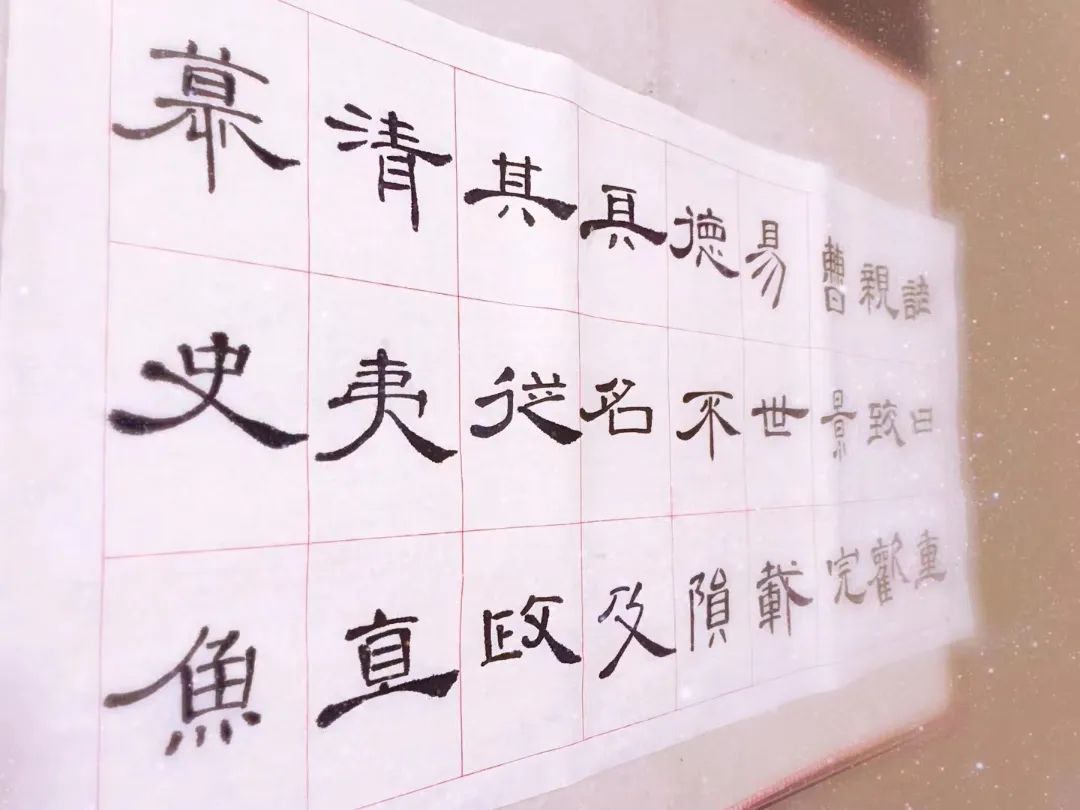 諺曰重
親致歡
曹景完
易世載
德不隕
具名及
其從政
清夷直
慕史魚